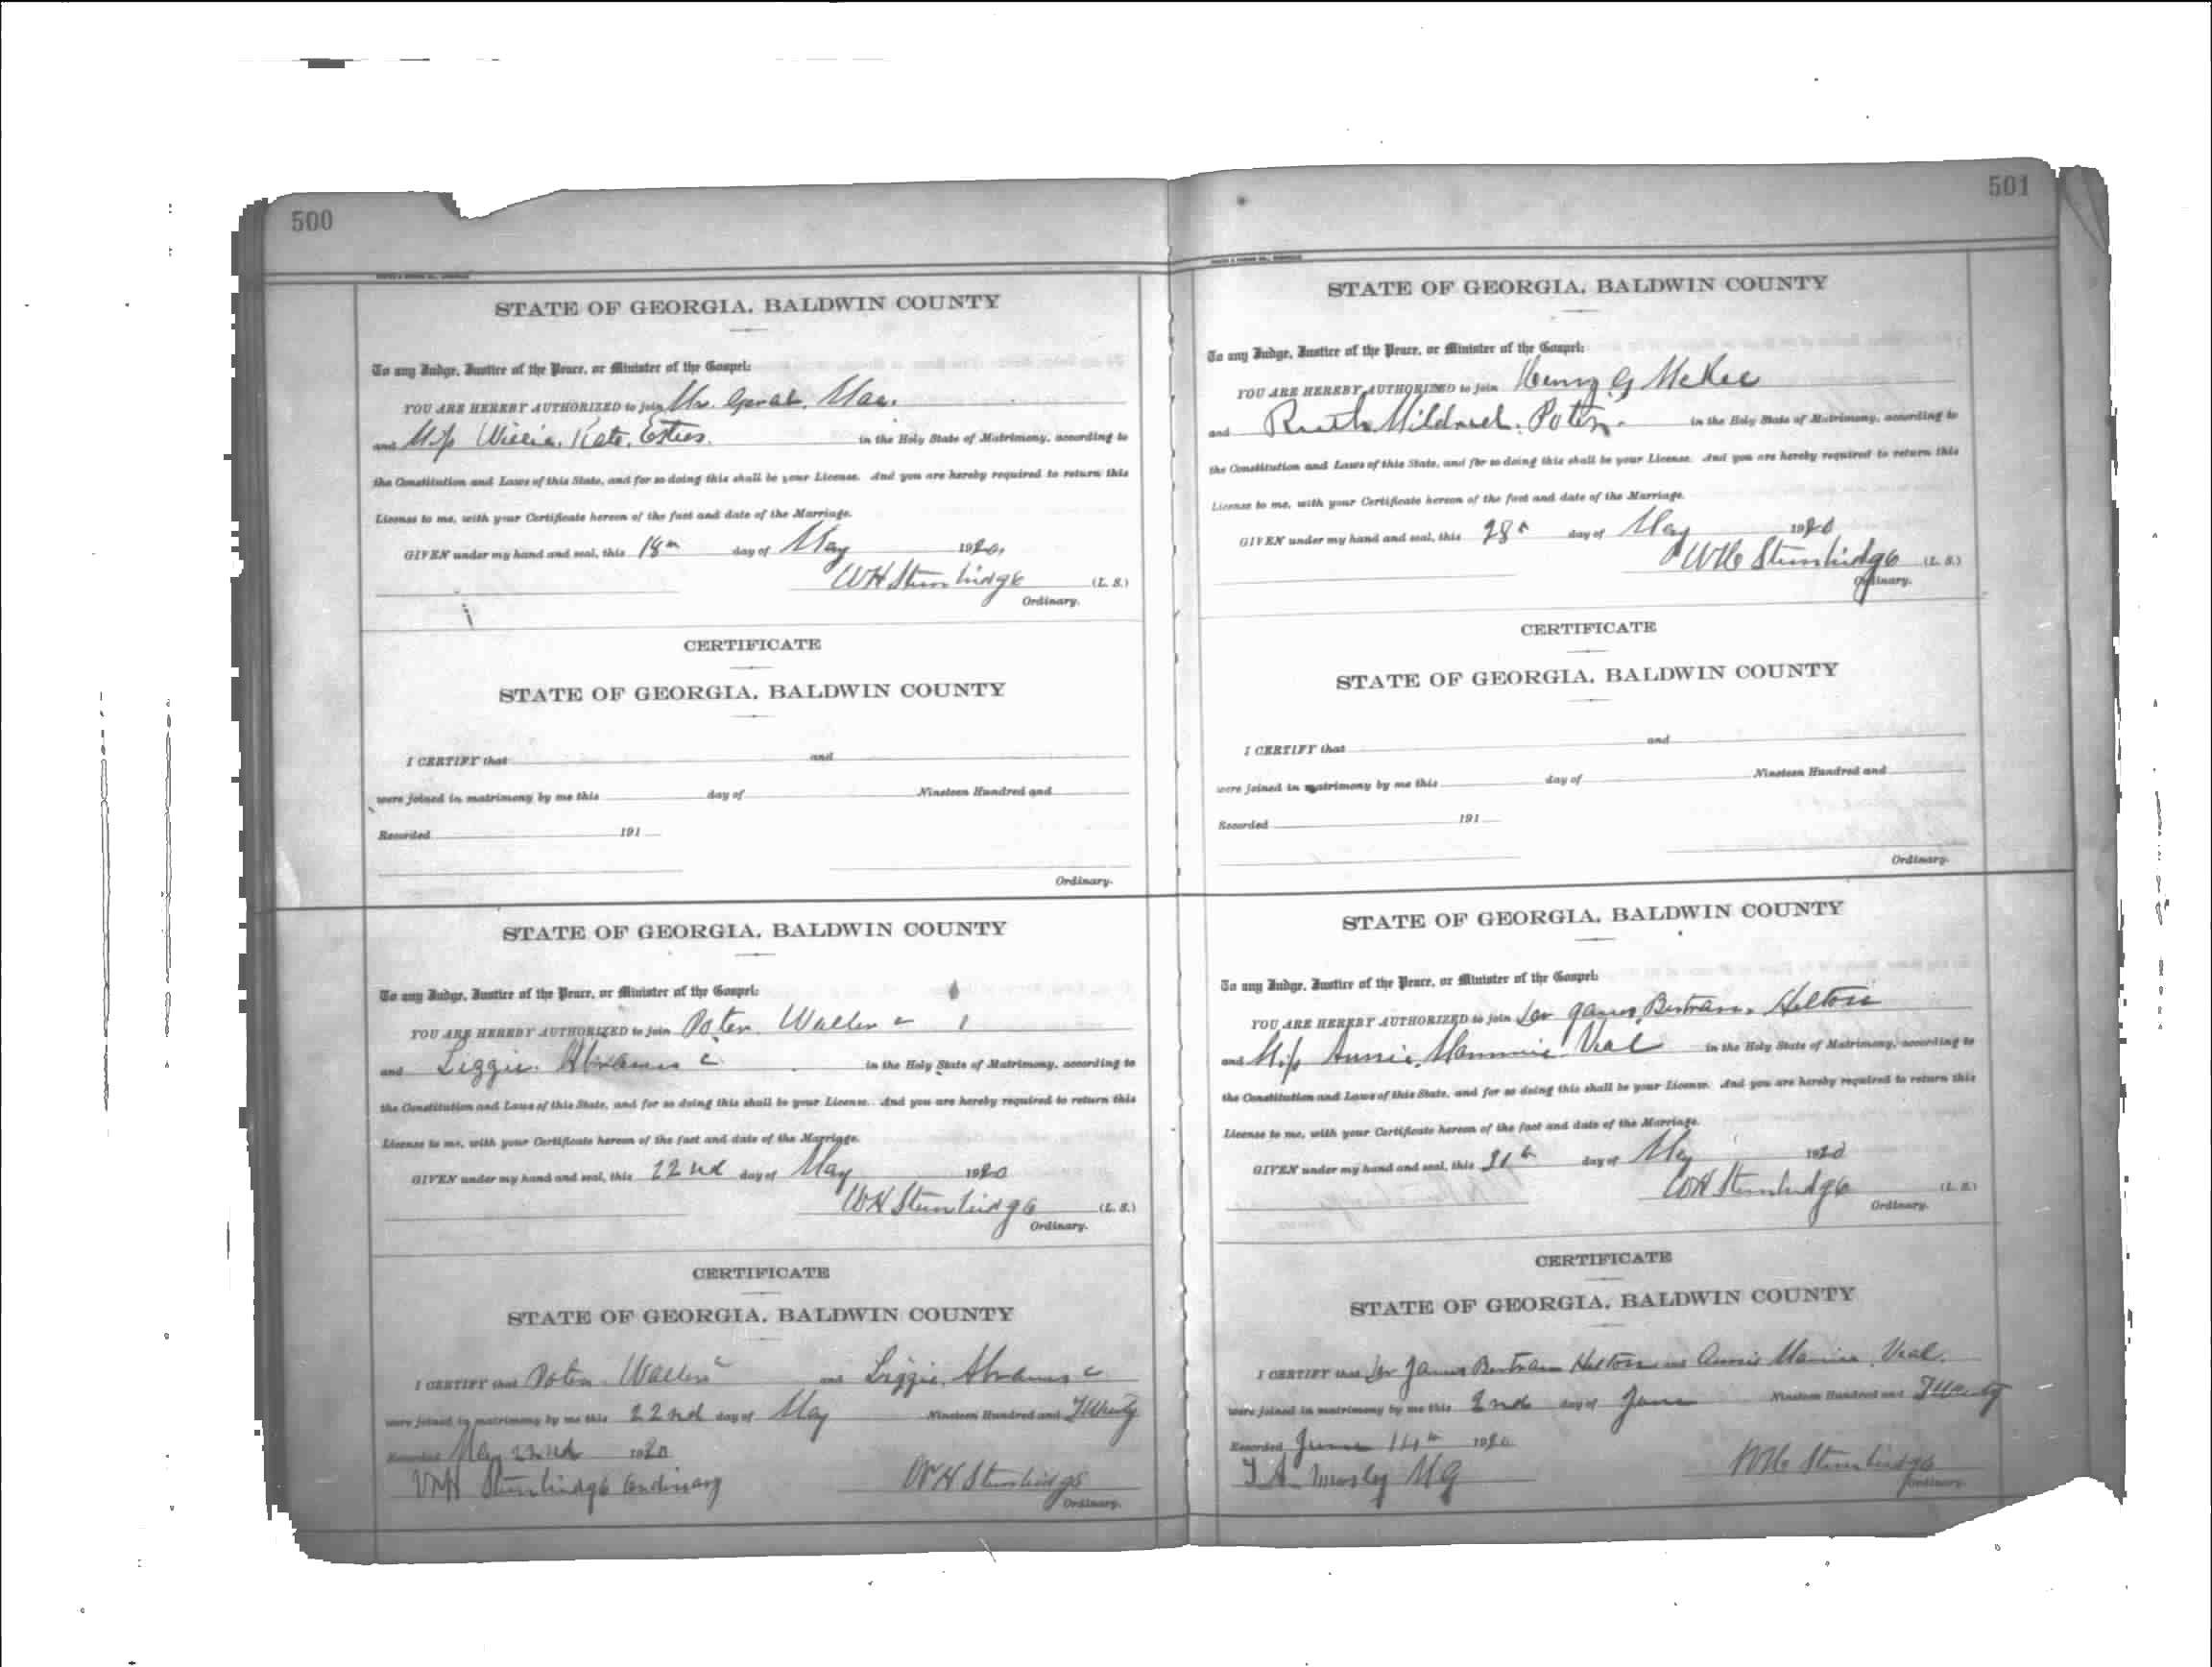 500
STATE OF GEORGIA, BALDWIN COUNTY
To any Judge, Justice of the Peace, or Minister of the Gospel:
YOU ARE HEREBY AUTHORIZED to join Mr.
and Miss Willie Kate Estes. in the Holy State of Matrimony, according to
the Constitution and Laws of this State, and for so doing this shall be your License. And you are hereby required to return this
License to me, with your Certificate hereon of the fact and date of the Marriage.
GIVEN under my hand and seal, this 18th day of May 1920.
WH Stembridge (L. S.)
Ordinary.
CERTIFICATE
STATE OF GEORGIA, BALDWIN COUNTY
I CERTIFY that and
were joined in matrimony by me this day of Nineteen Hundred and
Recorded 191
Ordinary.
STATE OF GEORGIA, BALDWIN COUNTY
To any Judge, Justice of the Peace, or Minister of the Gospel:
YOU ARE HEREBY AUTHORIZED to join Peter Waller c
and Lizzie Abrams c in the Holy State of Matrimony, according to
the Constitution and Laws of this State, and for so doing this shall be your License. And you are hereby required to return this
License to me, with your Certificate hereon of the fact and date of the Marriage.
GIVEN under my hand and seal, this 22nd day of May 1920
WH Stembridge (L. S.)
Ordinary.
CERTIFICATE
STATE OF GEORGIA, BALDWIN COUNTY
I CERTIFY that Peter Waller c and Lizzie Abrams c
were joined in matrimony by me this 22nd day of May Nineteen Hundred and Twenty
Recorded May 22nd 1920
WH Stembridge Ordinary WH Stembridge
Ordinary.
501
STATE OF GEORGIA, BALDWIN COUNTY
To any Judge, Justice of the Peace, or Minister of the Gospel:
YOU ARE HEREBY AUTHORIZED to join Henry G McKee
and Ruth Mildred in the Holy State of Matrimony, according to
the Constitution and Laws of this State, and for so doing this shall be your License. And you are hereby required to return this
License to me, with your Certificate hereon of the fact and date of the Marriage.
GIVEN under my hand and seal, this 28th day of May 1920
WH Stembridge (L. S.)
Ordinary.
CERTIFICATE
STATE OF GEORGIA, BALDWIN COUNTY
I CERTIFY that and
were joined in matrimony by me this day of Nineteen Hundred and
Recorded 191
Ordinary.
STATE OF GEORGIA, BALDWIN COUNTY
To any Judge, Justice of the Peace, or Minister of the Gospel:
YOU ARE HEREBY AUTHORIZED to join James Bertram Helton
and Miss Annie Mammie Veal in the Holy State of Matrimony, according to
the Constitution and Laws of this State, and for so doing this shall be your License. And you are hereby required to return this
License to me, with your Certificate hereon of the fact and date of the Marriage.
GIVEN under my hand and seal, this day of May 1920
WH Stembridge (L. S.)
Ordinary.
CERTIFICATE
STATE OF GEORGIA, BALDWIN COUNTY
I CERTIFY that James Bertram Helton and Annie Mamie Veal.
were joined in matrimony by me this 2nd day of June Nineteen Hundred and Twenty
Recorded June 14th 1920
MG WH Stembridge
Ordinary.